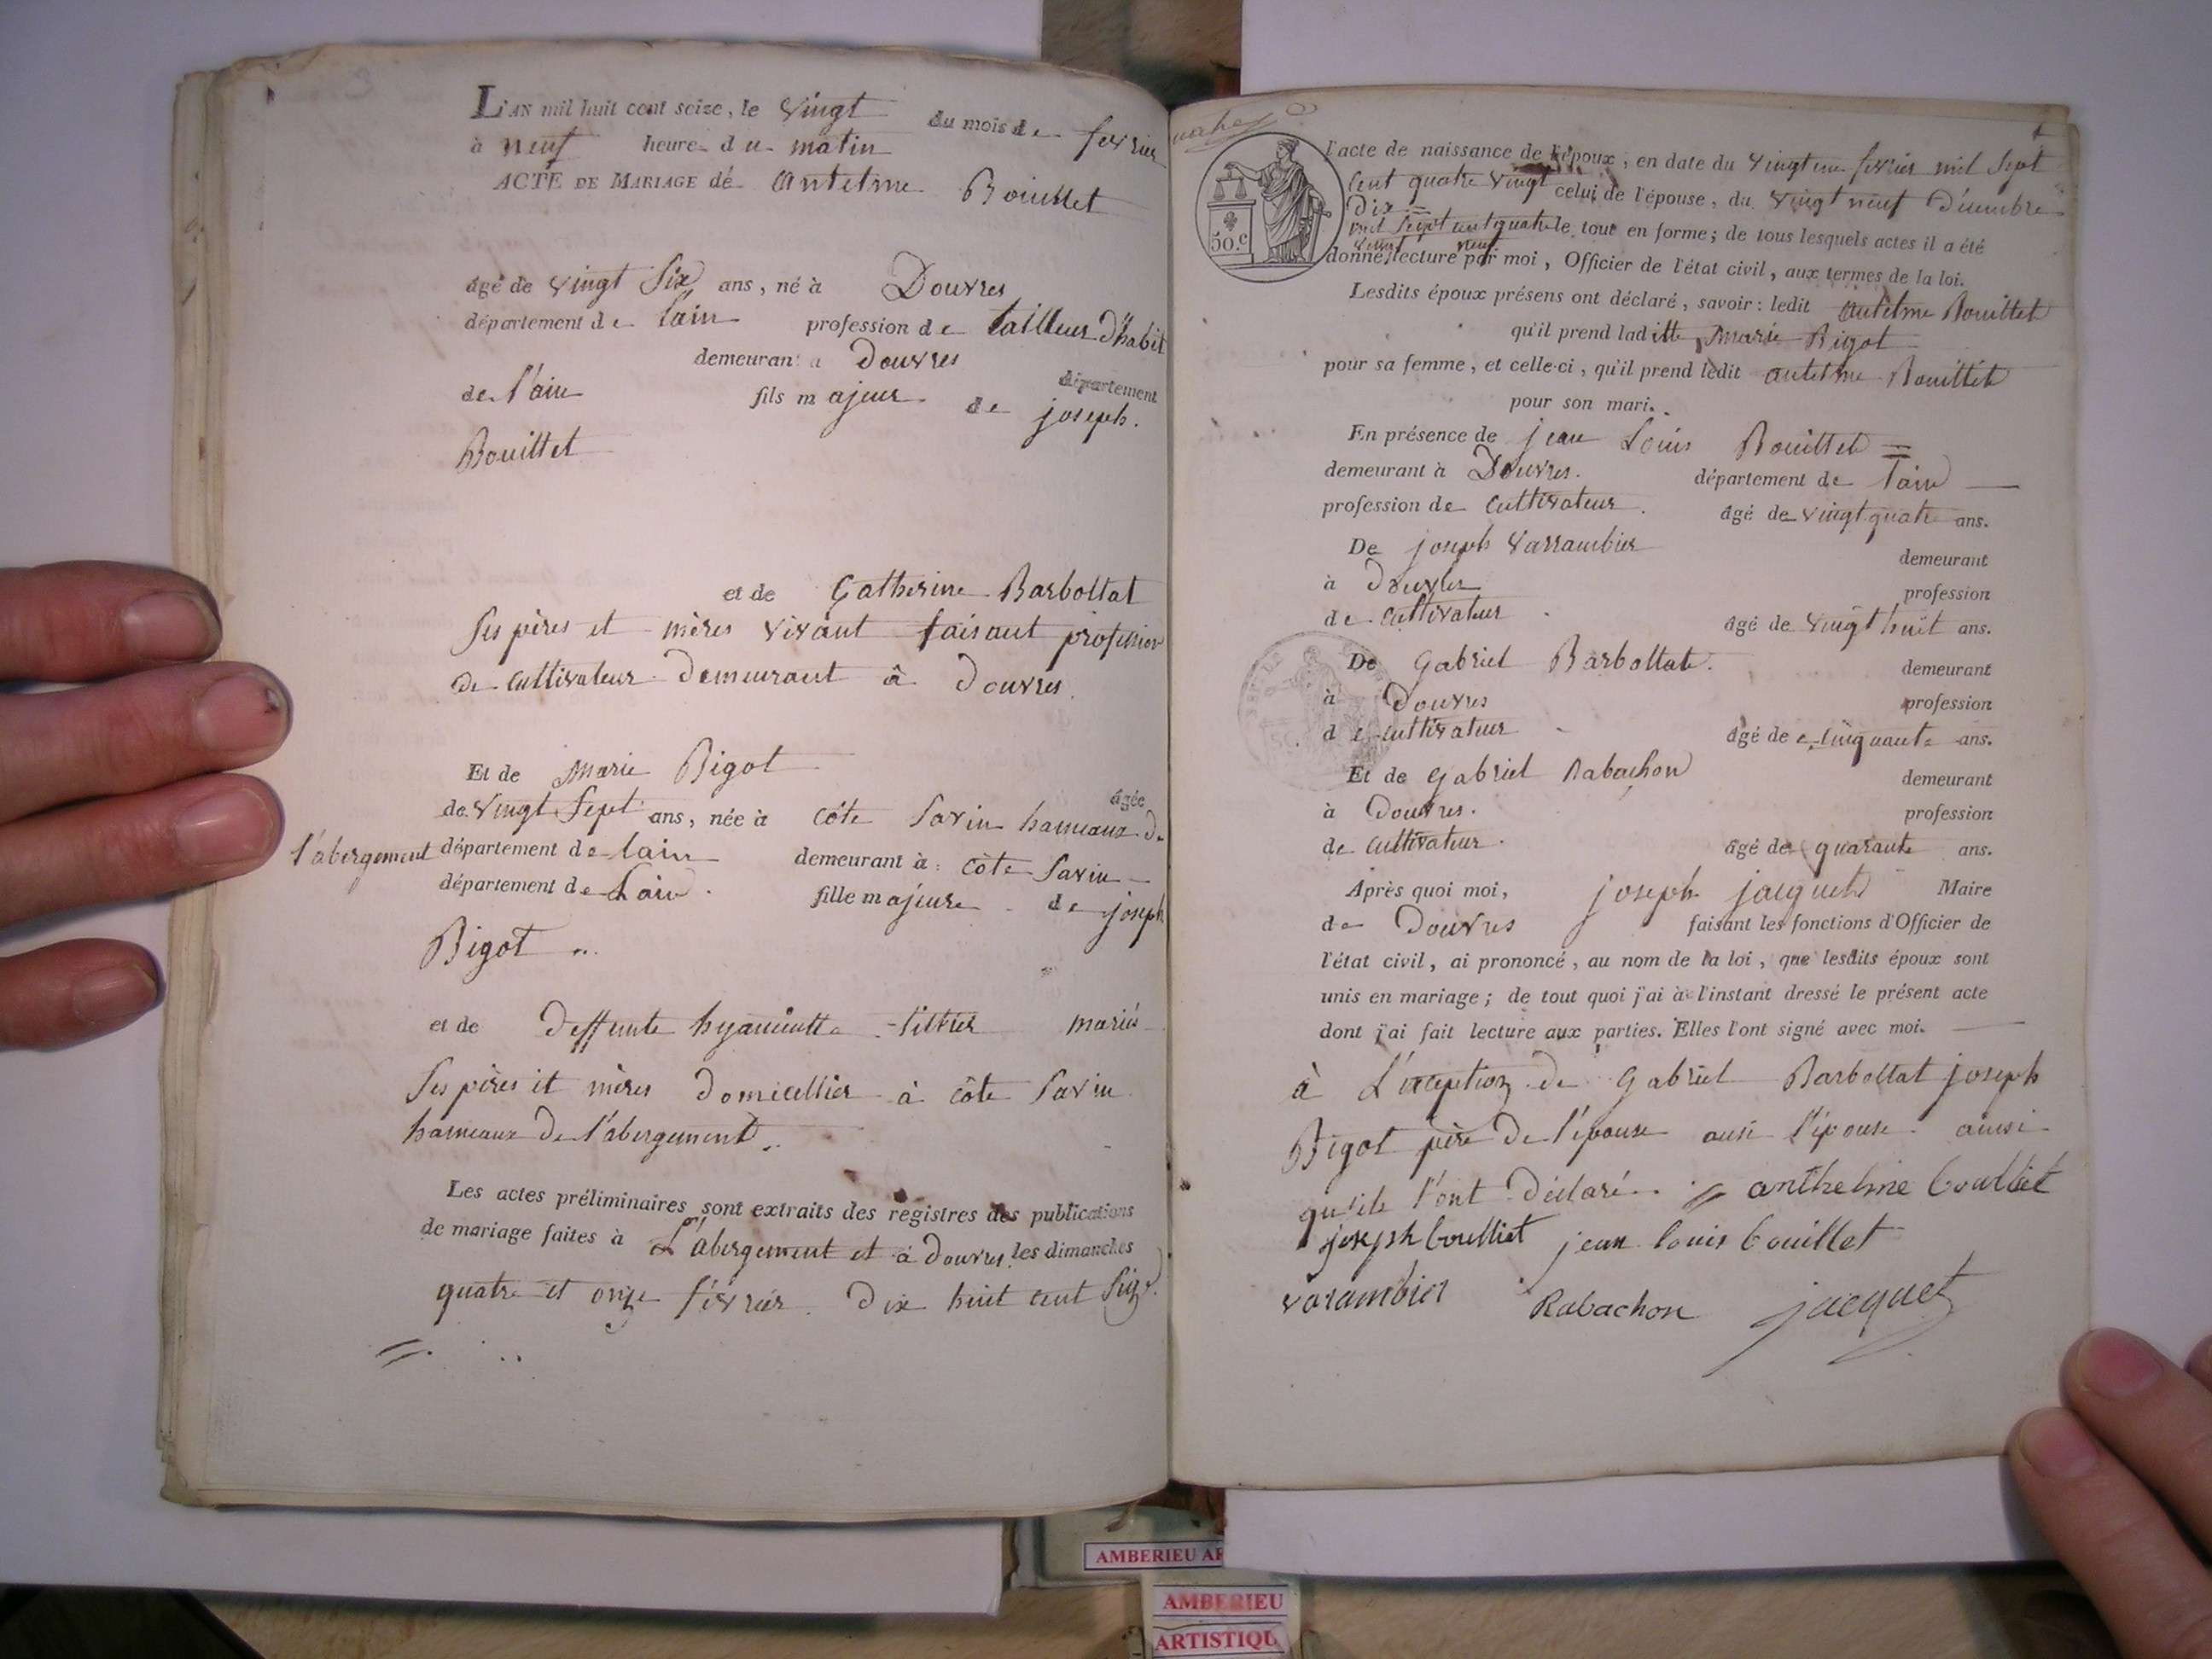 L'AN mil huit cent seize, le vingt du mois de fevrier
à neuf heure du matin
ACTE DE MARIAGE de Antelme Bouillet
âgé de vingt Six ans, né à Douvres
département de lain profession de tailleur d'habit
demeurant à Douvres département
de l'ain fils majeur de joseph
Bouillet
et de Catherine Barbollat
Ses pères et mères vivant faisant profession
de cultivateur demeurant à Douvres
Et de Marie Bigot âgée
de vingt Sept ans, née à côte Savin hameaux de
l'abergement département de lain demeurant à côte Savin
département de Lain fille majeure de joseph
Bigot
et de deffunte hyacinte mariés
Ses pères et mères domicellier à côte Savin
hameaux de l'abergement
Les actes préliminaires sont extraits des registres des publications
de mariage faites à L'abergement et à douvres les dimanches
quatre et onze février dix huit cent Sieze
50.c
l'acte de naissance de l'époux, en date du vingt un fevrier mil Sept
Cent quatre vingt celui de l'épouse, du vingt neuf Décembre
Dix =
mil Sept cent quatre le tout en forme; de tous lesquels actes il a été
vingt neuf
donné lecture par moi, Officier de l'état civil, aux termes de la loi.
Lesdits époux présens ont déclaré, savoir: ledit antelme Bouillet
qu'il prend laditte Marie Bigot
pour sa femme, et celle-ci, qu'il prend ledit antelme Bouillet
pour son mari.
En présence de jean Louis Bouillet =
demeurant à Douvres. département de lain
profession de Cultivateur. âgé de vingt quatre ans.
De joseph Varrambier demeurant
à Douvres profession
de cultivateur âgé de vingt huit ans.
De Gabriel Barbollat. demeurant
à Douvres profession
de cultivateur âgé de cinquante ans.
Et de Gabriel Rabachon demeurant
à Douvres. profession
de cultivateur. âgé de quarante ans.
Après quoi moi, joseph jacquet Maire
de Douvres faisant les fonctions d'Officier de
l'état civil, ai prononcé, au nom de la loi, que lesdits époux sont
unis en mariage; de tout quoi j'ai à l'instant dressé le présent acte
dont j'ai fait lecture aux parties. Elles l'ont signé avec moi.
à L'exception de Gabriel Barbollat joseph
Bigot père de l'épouse ausi l'épouse ainsi
qu'ils l'ont déclaré. anthelme bouillet
joseph boulliet jean louis bouillet
varambier Rabachon jacquet
AMBERIEU AR
AMBERIEU
ARTISTIQU